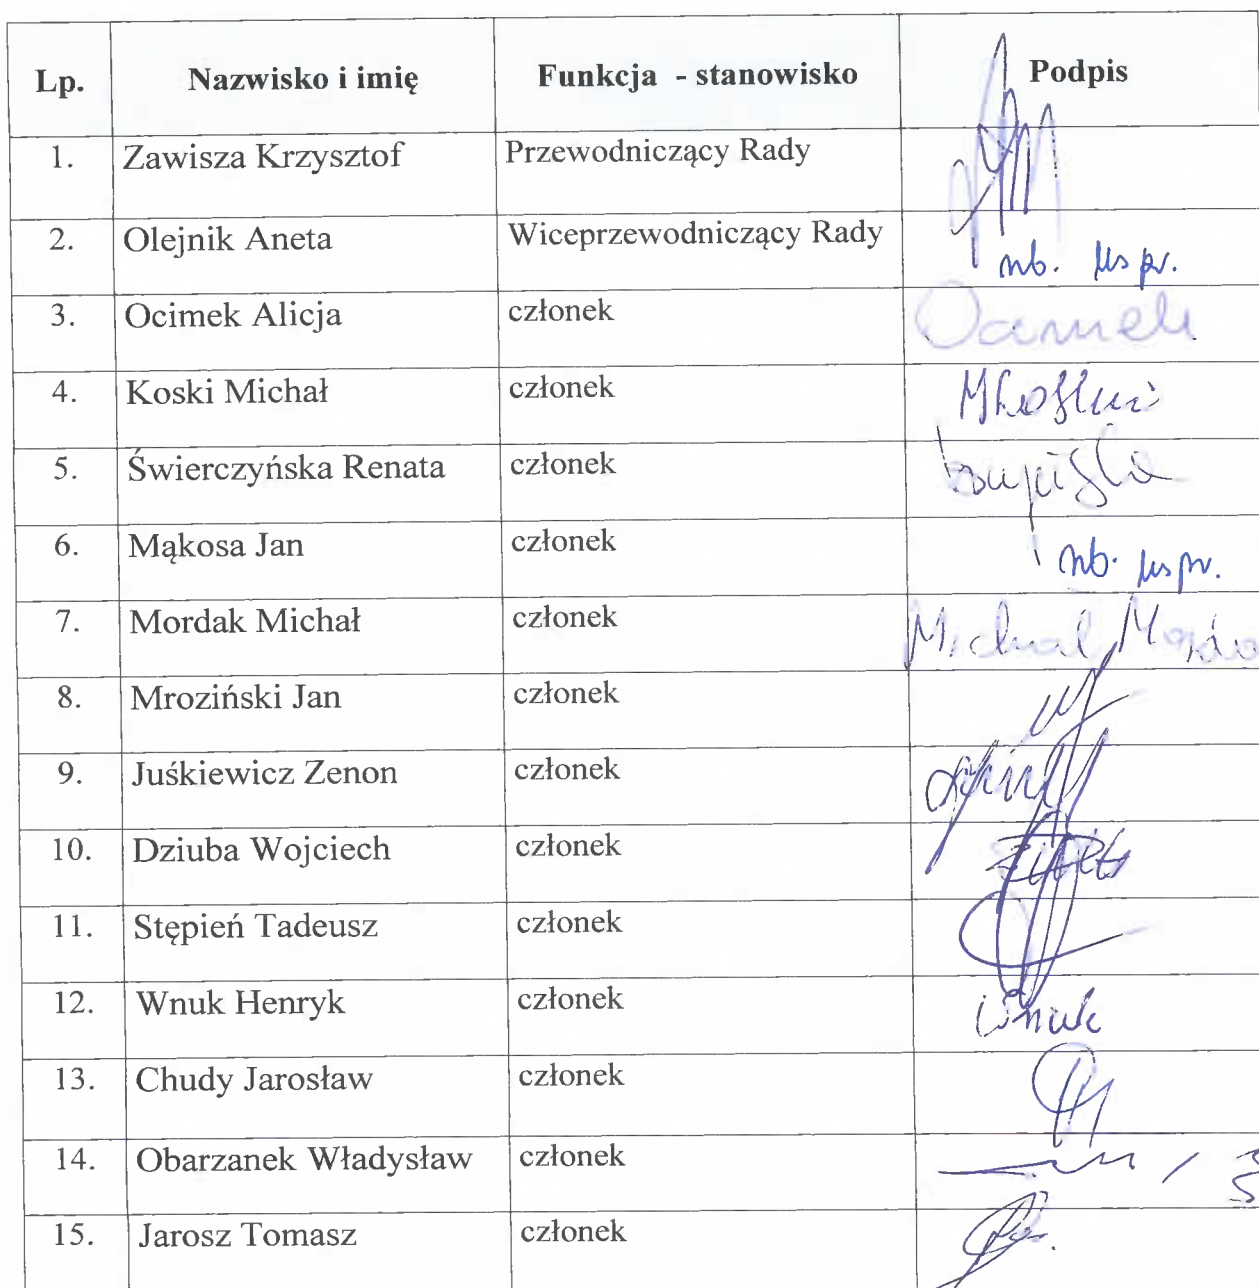 Lp. Nazwisko i imię Funkcja - stanowisko Podpis
1. Zawisza Krzysztof Przewodniczący Rady
2. Olejnik Aneta Wiceprzewodniczący Rady nb. uspr.
3. Ocimek Alicja członek
4. Koski Michał członek
5. Świerczyńska Renata członek
6. Mąkosa Jan członek nb. uspr.
7. Mordak Michał członek Michał
8. Mroziński Jan członek
9. Juśkiewicz Zenon członek
10. Dziuba Wojciech członek
11. Stępień Tadeusz członek
12. Wnuk Henryk członek Wnuk
13. Chudy Jarosław członek
14. Obarzanek Władysław członek
15. Jarosz Tomasz członek